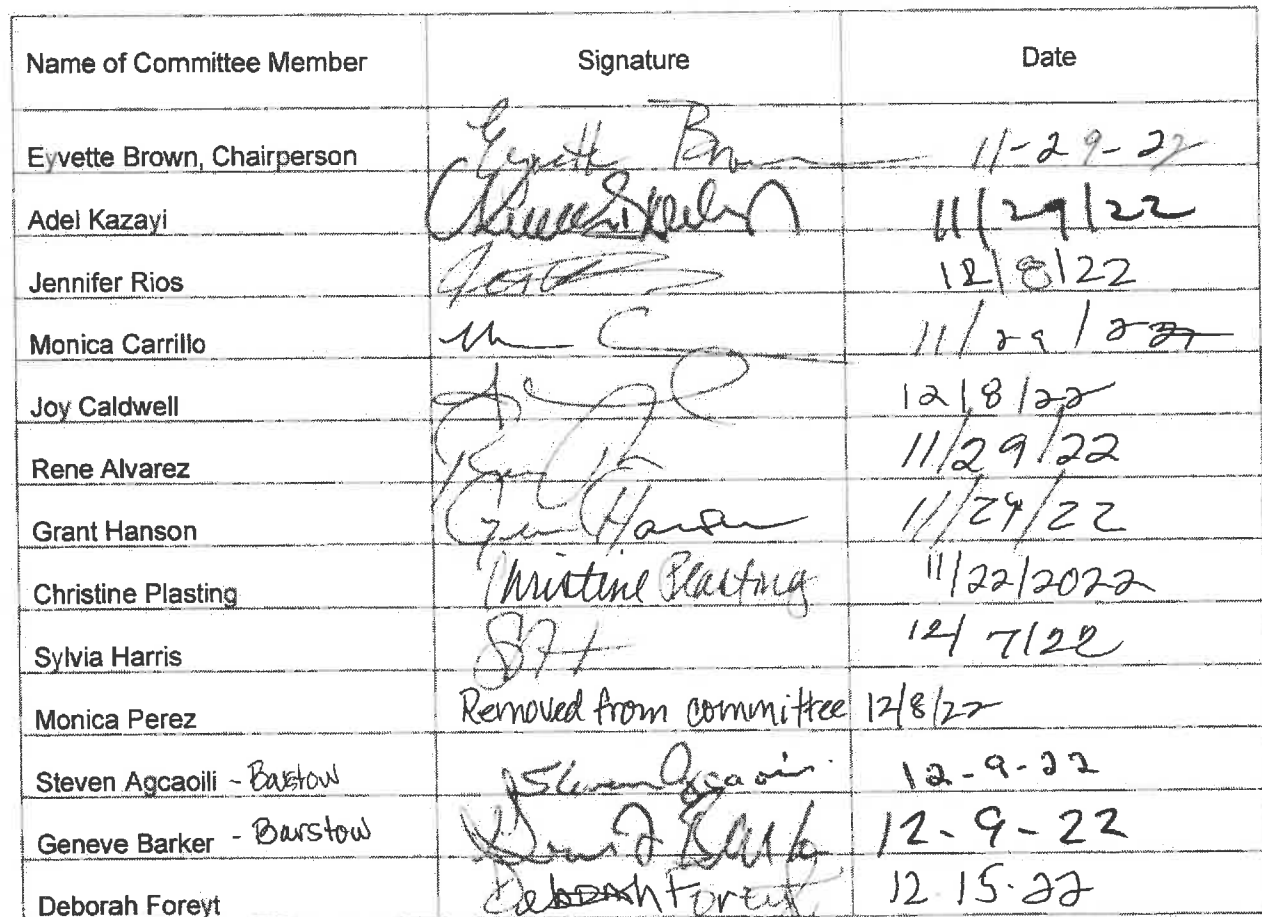 Name of Committee Member Signature Date
Eyvette Brown, Chairperson Eyvette Brown 11-29-22
Adel Kazayi 11/29/22
Jennifer Rios 12/8/22
Monica Carrillo 11/29/22
Joy Caldwell 12/8/22
Rene Alvarez 11/29/22
Grant Hanson Hanson 11/29/22
Christine Plasting Christine Plasting 11/22/2022
Sylvia Harris 12/7/22
Monica Perez Removed from committee 12/8/22
Steven Agcaoili - Barstow Steven Agcaoili 12-9-22
Geneve Barker - Barstow 12-9-22
Deborah Foreyt Deborah Foreyt 12.15.22